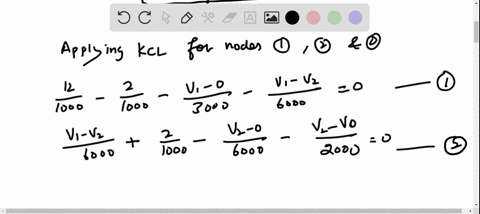 Applying KCL for nodes ①, ② & ⓪
12/1000 - 2/1000 - (V1-0)/3000 - (V1-V2)/6000 = 0 —— ①
(V1-V2)/6000 + 2/1000 - (V2-0)/6000 - (V2-V0)/2000 = 0 —— ②